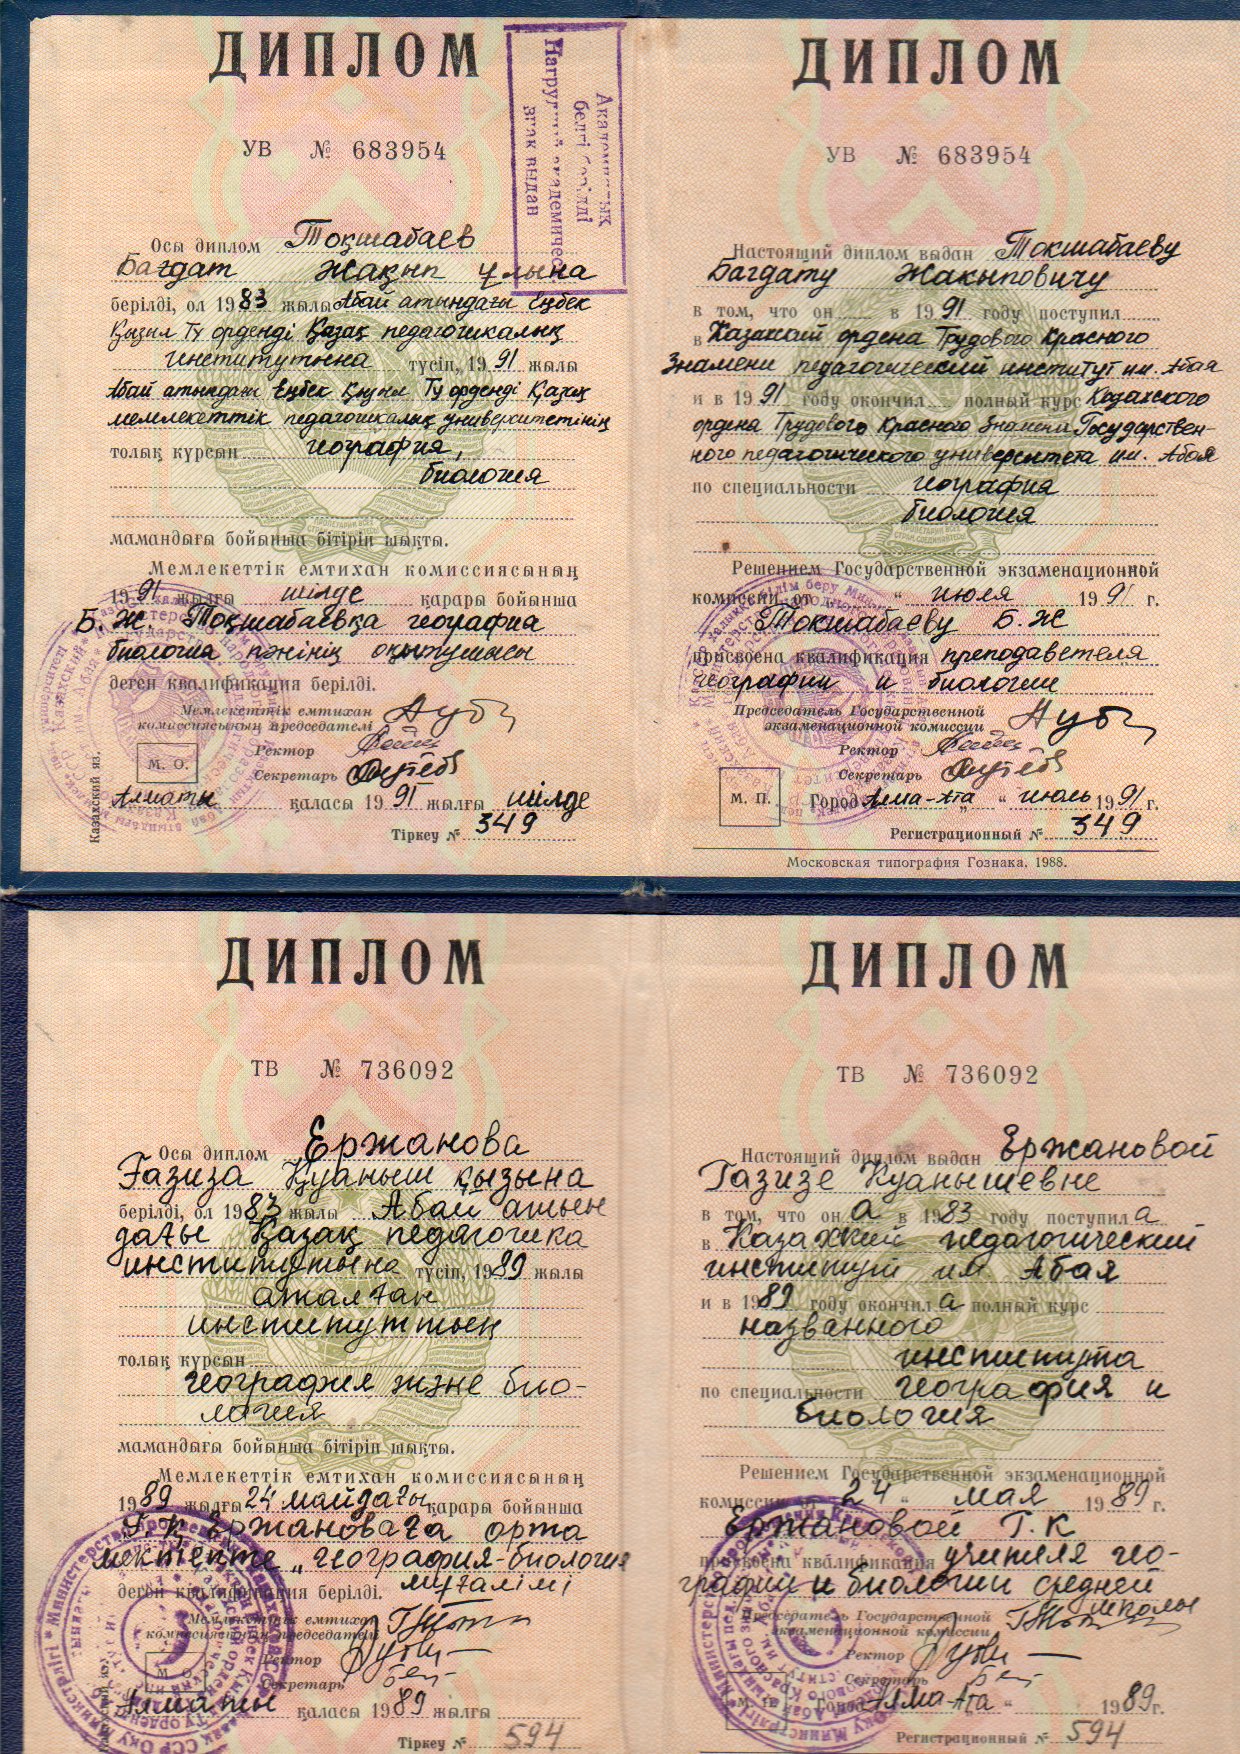 ДИПЛОМ
УВ № 683954
Академиялық
белгі берілді
Нагрудный академичес
знак выдан
Осы диплом Тоқшабаев
Бағдат Жақып ұлына
берілді, ол 1983 жылы Абай атындағы Еңбек
Қызыл Ту орденді Қазақ педагогикалық
институтына түсіп, 1991 жылы
Абай атындағы Еңбек Қызыл Ту орденді Қазақ
мемлекеттік педагогикалық университетінің
толық курсын география,
биология
мамандығы бойынша бітіріп шықты.
Мемлекеттік емтихан комиссиясының
1991 жылғы шілде қарары бойынша
Б. Ж. Тоқшабаевқа география
биология пәнінің оқытушысы
деген квалификация берілді.
Мемлекеттік емтихан
комиссиясының председателі
Ректор
Секретарь
М. О.
Алматы қаласы 1991 жылғы шілде
Тіркеу № 349
Казахский яз.
ДИПЛОМ
УВ № 683954
Настоящий диплом выдан Токшабаеву
Багдату Жакыповичу
в том, что он в 1991 году поступил
в Казахский ордена Трудового Красного
Знамени педагогический институт им. Абая
и в 1991 году окончил полный курс Казахского
ордена Трудового Красного Знамени Государствен-
ного педагогического университета им. Абая
по специальности география
биология
Решением Государственной экзаменационной
комиссии от „ “ июля 1991 г.
Токшабаеву Б. Ж
присвоена квалификация преподавателя
географии и биологии
Председатель Государственной
экзаменационной комиссии
Ректор
Секретарь
М. П.
Город Алма-Ата „ “ июль 1991 г.
Регистрационный № 349
Московская типография Гознака, 1988.
ДИПЛОМ
ТВ № 736092
Осы диплом Ержанова
Ғазиза Қуаныш қызына
берілді, ол 1983 жылы Абай атын
дағы Қазақ педагогика
институтына түсіп, 1989 жылы
аталған
институттың
толық курсын
география және био-
логия
мамандығы бойынша бітіріп шықты.
Мемлекеттік емтихан комиссиясының
1989 жылғы 24 майдағы қарары бойынша
Ғ. Қ. Ержановаға орта
мектепте „география-биология
деген квалификация берілді. мұғалімі
Мемлекеттік емтихан
комиссиясының председателі
Ректор
Секретарь
М. О.
Алматы қаласы 1989 жылғы
Тіркеу № 594
ДИПЛОМ
ТВ № 736092
Настоящий диплом выдан Ержановой
Газизе Куанышевне
в том, что он а в 1983 году поступил а
в Казахский педагогический
институт им Абая
и в 1989 году окончил а полный курс
названного
института
по специальности география и
биология
Решением Государственной экзаменационной
комиссии от „ 24 “ мая 1989 г.
Ержановой Г. К
присвоена квалификация учителя гео-
графии и биологии средней
школы
Председатель Государственной
экзаменационной комиссии
Ректор
Секретарь
М. П.
Город Алма-Ата „ “ 1989 г.
Регистрационный № 594